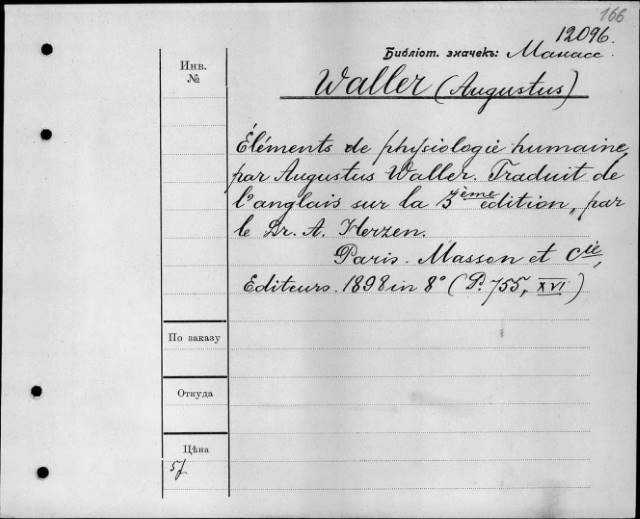 166
12096.
Библіот. значекъ: Манасс.
Инв.
№
Waller (Augustus)
Éléments de physiologie humaine,
par Augustus Waller. Traduit de
l'anglais sur la 3ème édition, par
le Dr. A. Herzen.
Paris. Masson et Cie,
Editeurs. 1898 in 8° (P. 755, XVI)
По заказу
Откуда
Цѣна
5f